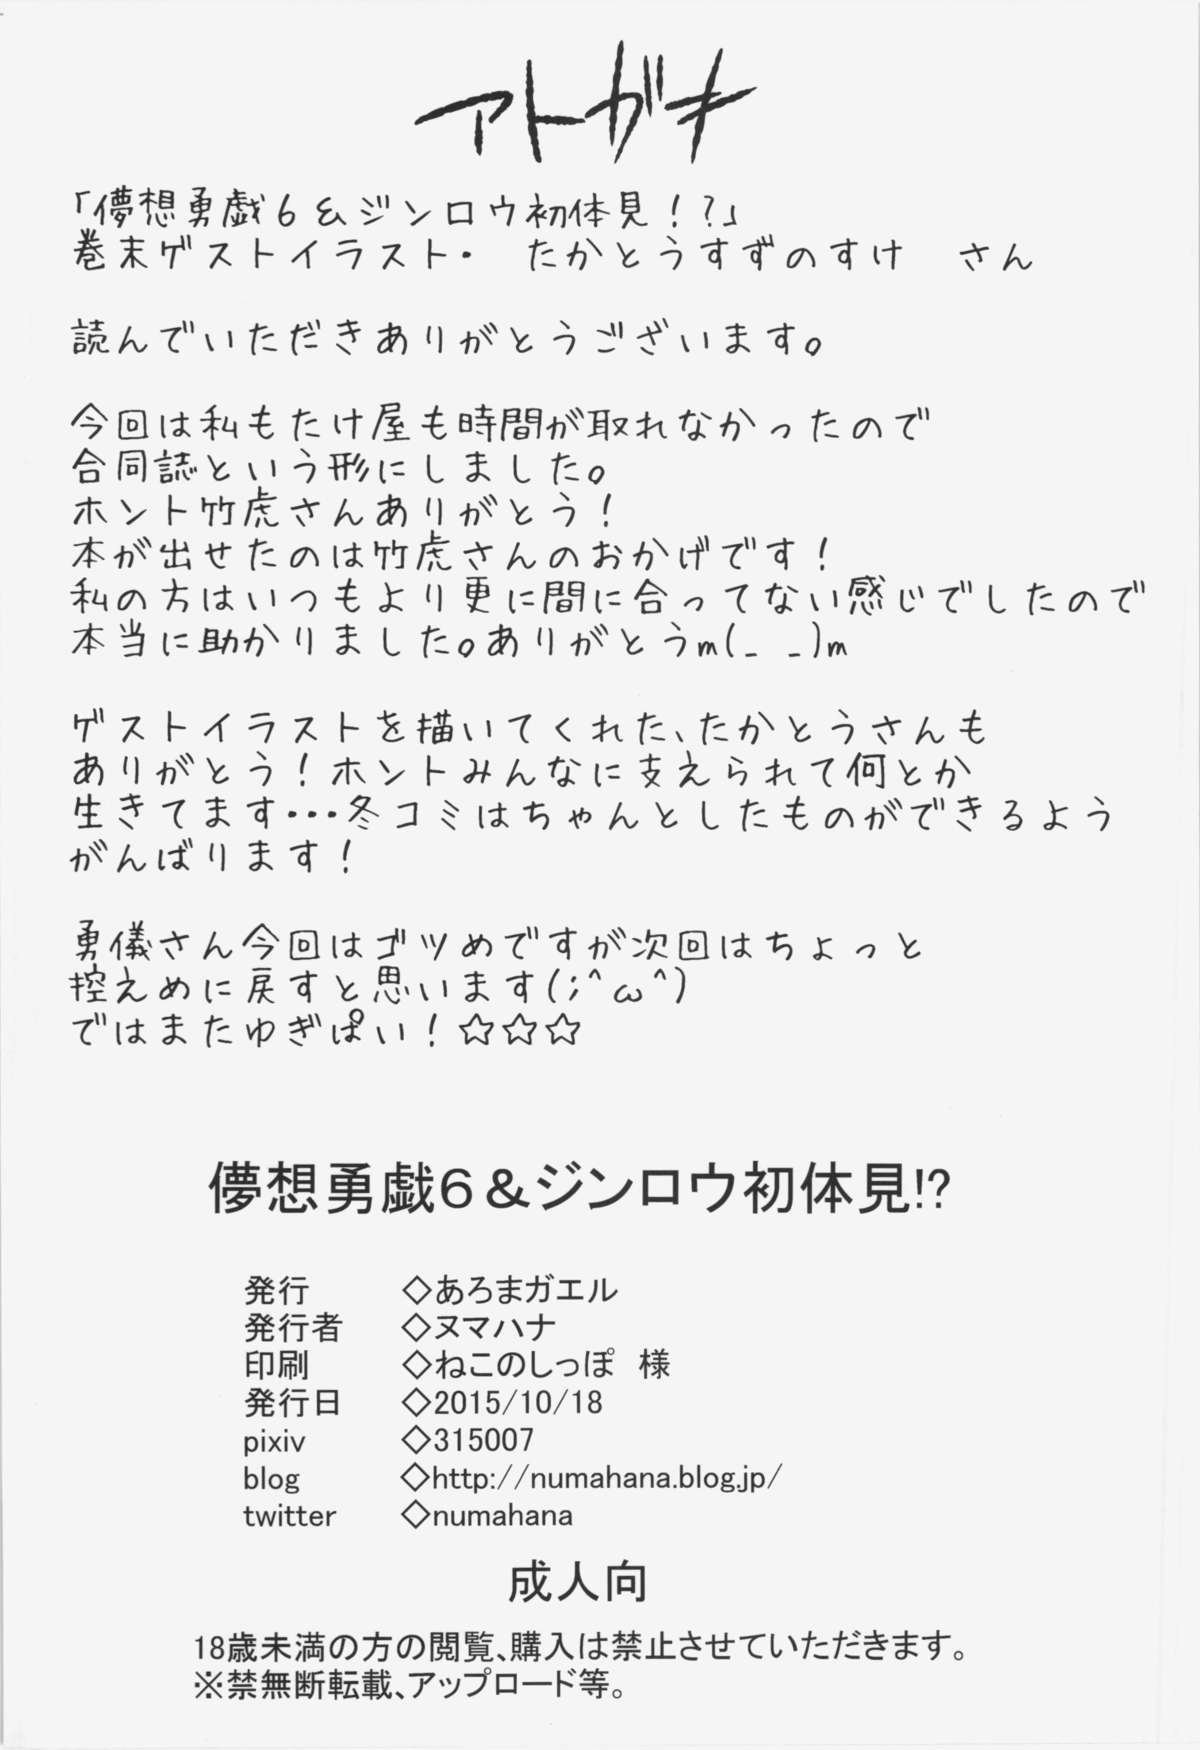 アトガキ
「儚想勇戯6&ジンロウ初体見！?」
巻末ゲストイラスト・　たかとうすずのすけ　さん
読んでいただきありがとうございます。
今回は私もたけ屋も時間が取れなかったので
合同誌という形にしました。
ホント竹虎さんありがとう！
本が出せたのは竹虎さんのおかげです！
私の方はいつもより更に間に合ってない感じでしたので
本当に助かりました。ありがとうm(_ _)m
ゲストイラストを描いてくれた、たかとうさんも
ありがとう！ホントみんなに支えられて何とか
生きてます・・・冬コミはちゃんとしたものができるよう
がんばります！
勇儀さん今回はゴツめですが次回はちょっと
控えめに戻すと思います(;^ω^)
ではまたゆぎぱい！☆☆☆
儚想勇戯6＆ジンロウ初体見!?
発行　◇あろまガエル
発行者　◇ヌマハナ
印刷　◇ねこのしっぽ　様
発行日　◇2015/10/18
pixiv　◇315007
blog　◇http://numahana.blog.jp/
twitter　◇numahana
成人向
18歳未満の方の閲覧、購入は禁止させていただきます。
※禁無断転載、アップロード等。